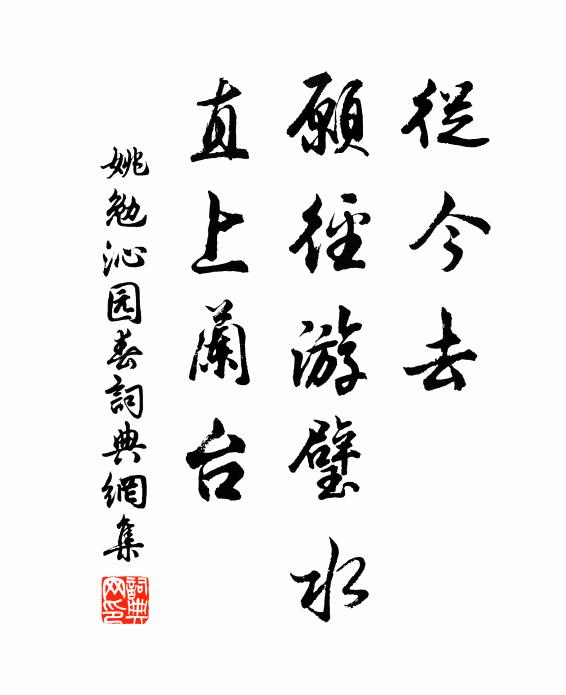 從今去
願徑游璧水
直上蘭台
姚勉沁园春詞典網集
詞典網印